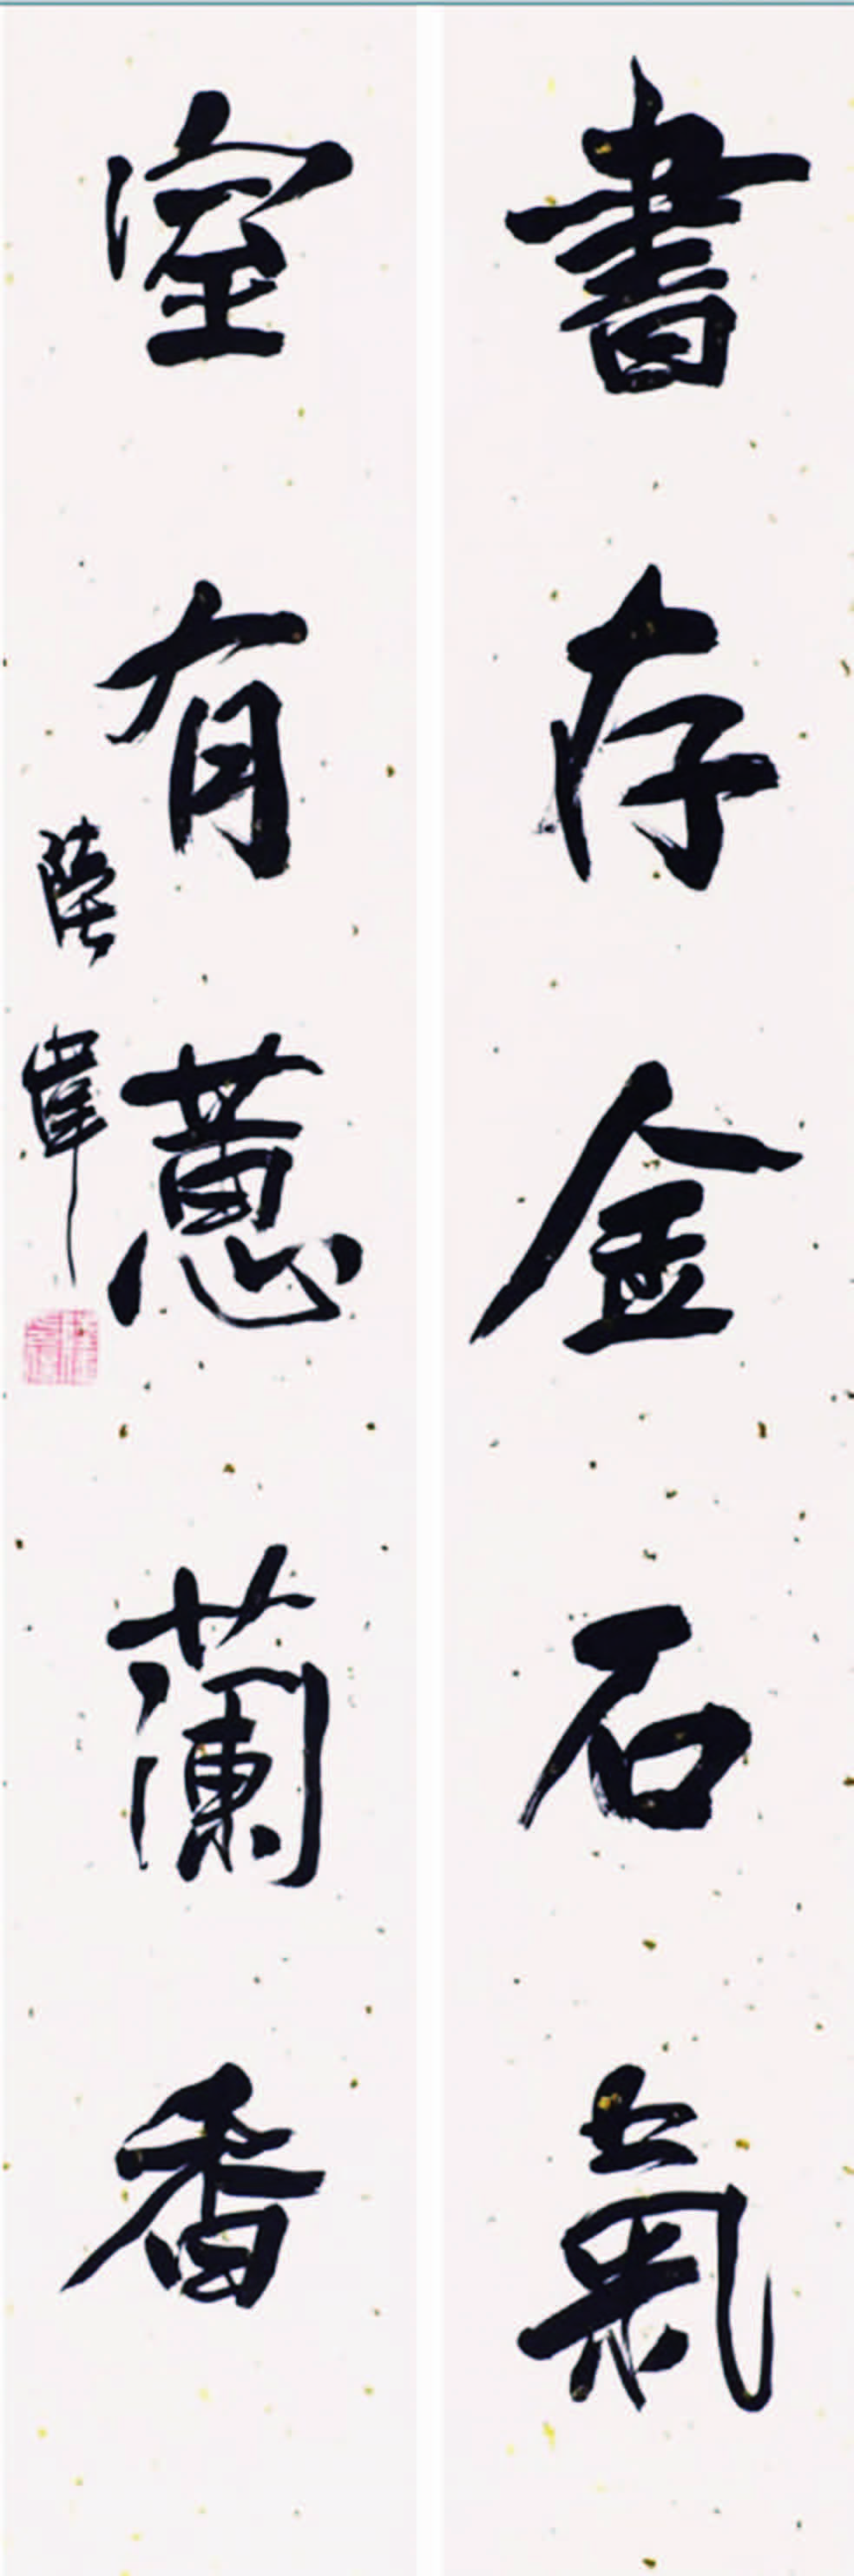 書存金石氣
室有蕙蘭香
陸